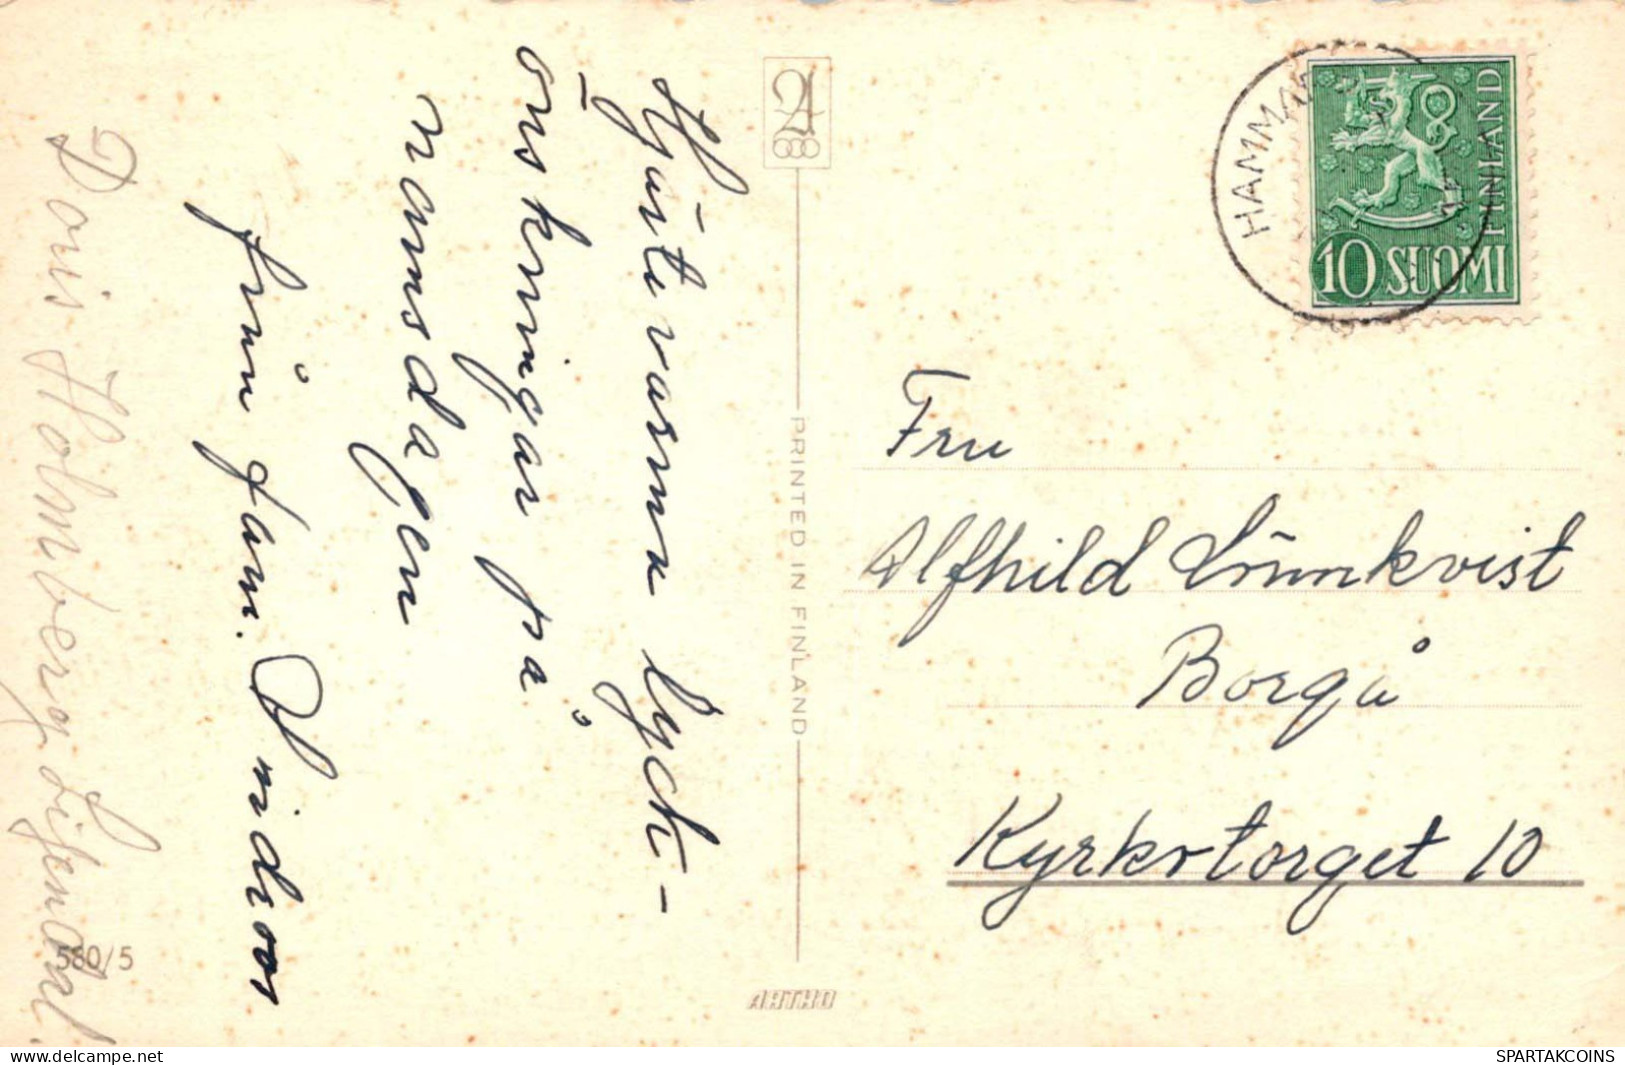 Hjärtevarma lyck-
önskningar på
namnsdagen
från fam.
Doris Holmberg
580/5
PRINTED IN FINLAND
ARTKO
HAMMA
10 SUOMI
FINLAND
Fru
Alfhild
Borgå
Kyrkotorget 10
delcampe.net
SPARTAKCOINS